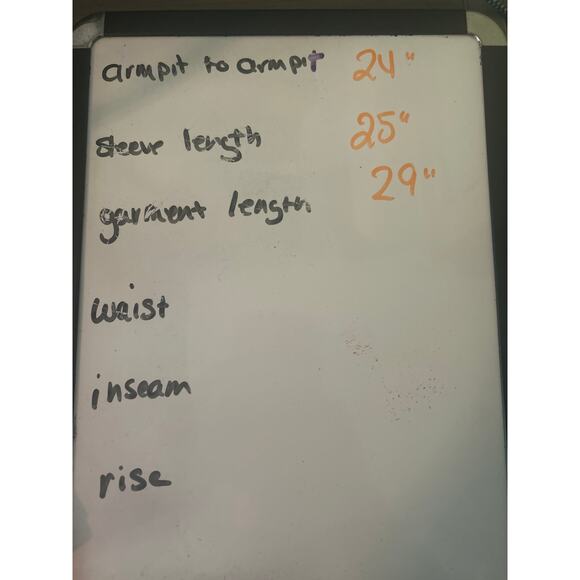 armpit to armpit 24"
sleeve length 25"
garment length 29"
waist
inseam
rise